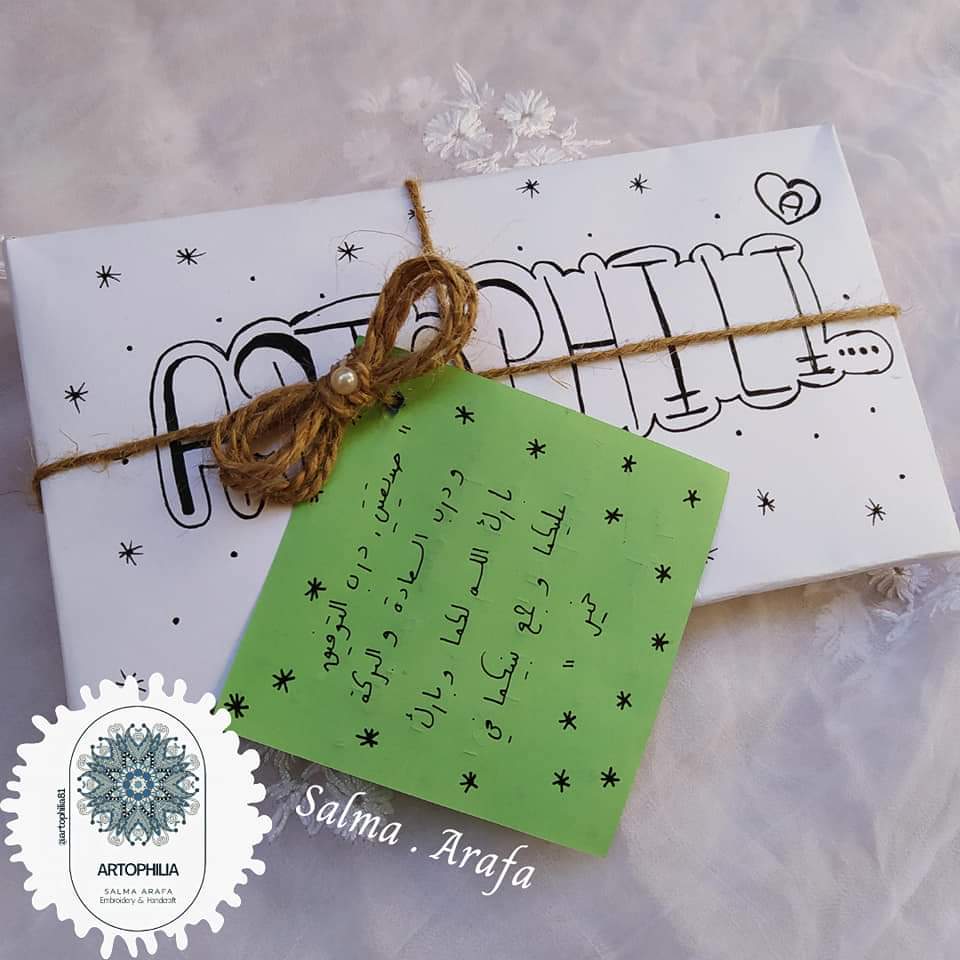 A
ARTOPHILI....
" صديقتي, درب التوفيق
و درب السعادة و البركة
بارك الله لكما وبارك
عليكما و جمع بينكما في
خير "
Salma . Arafa
@artophilia81
ARTOPHILIA
SALMA ARAFA
Embroidery & Handcraft